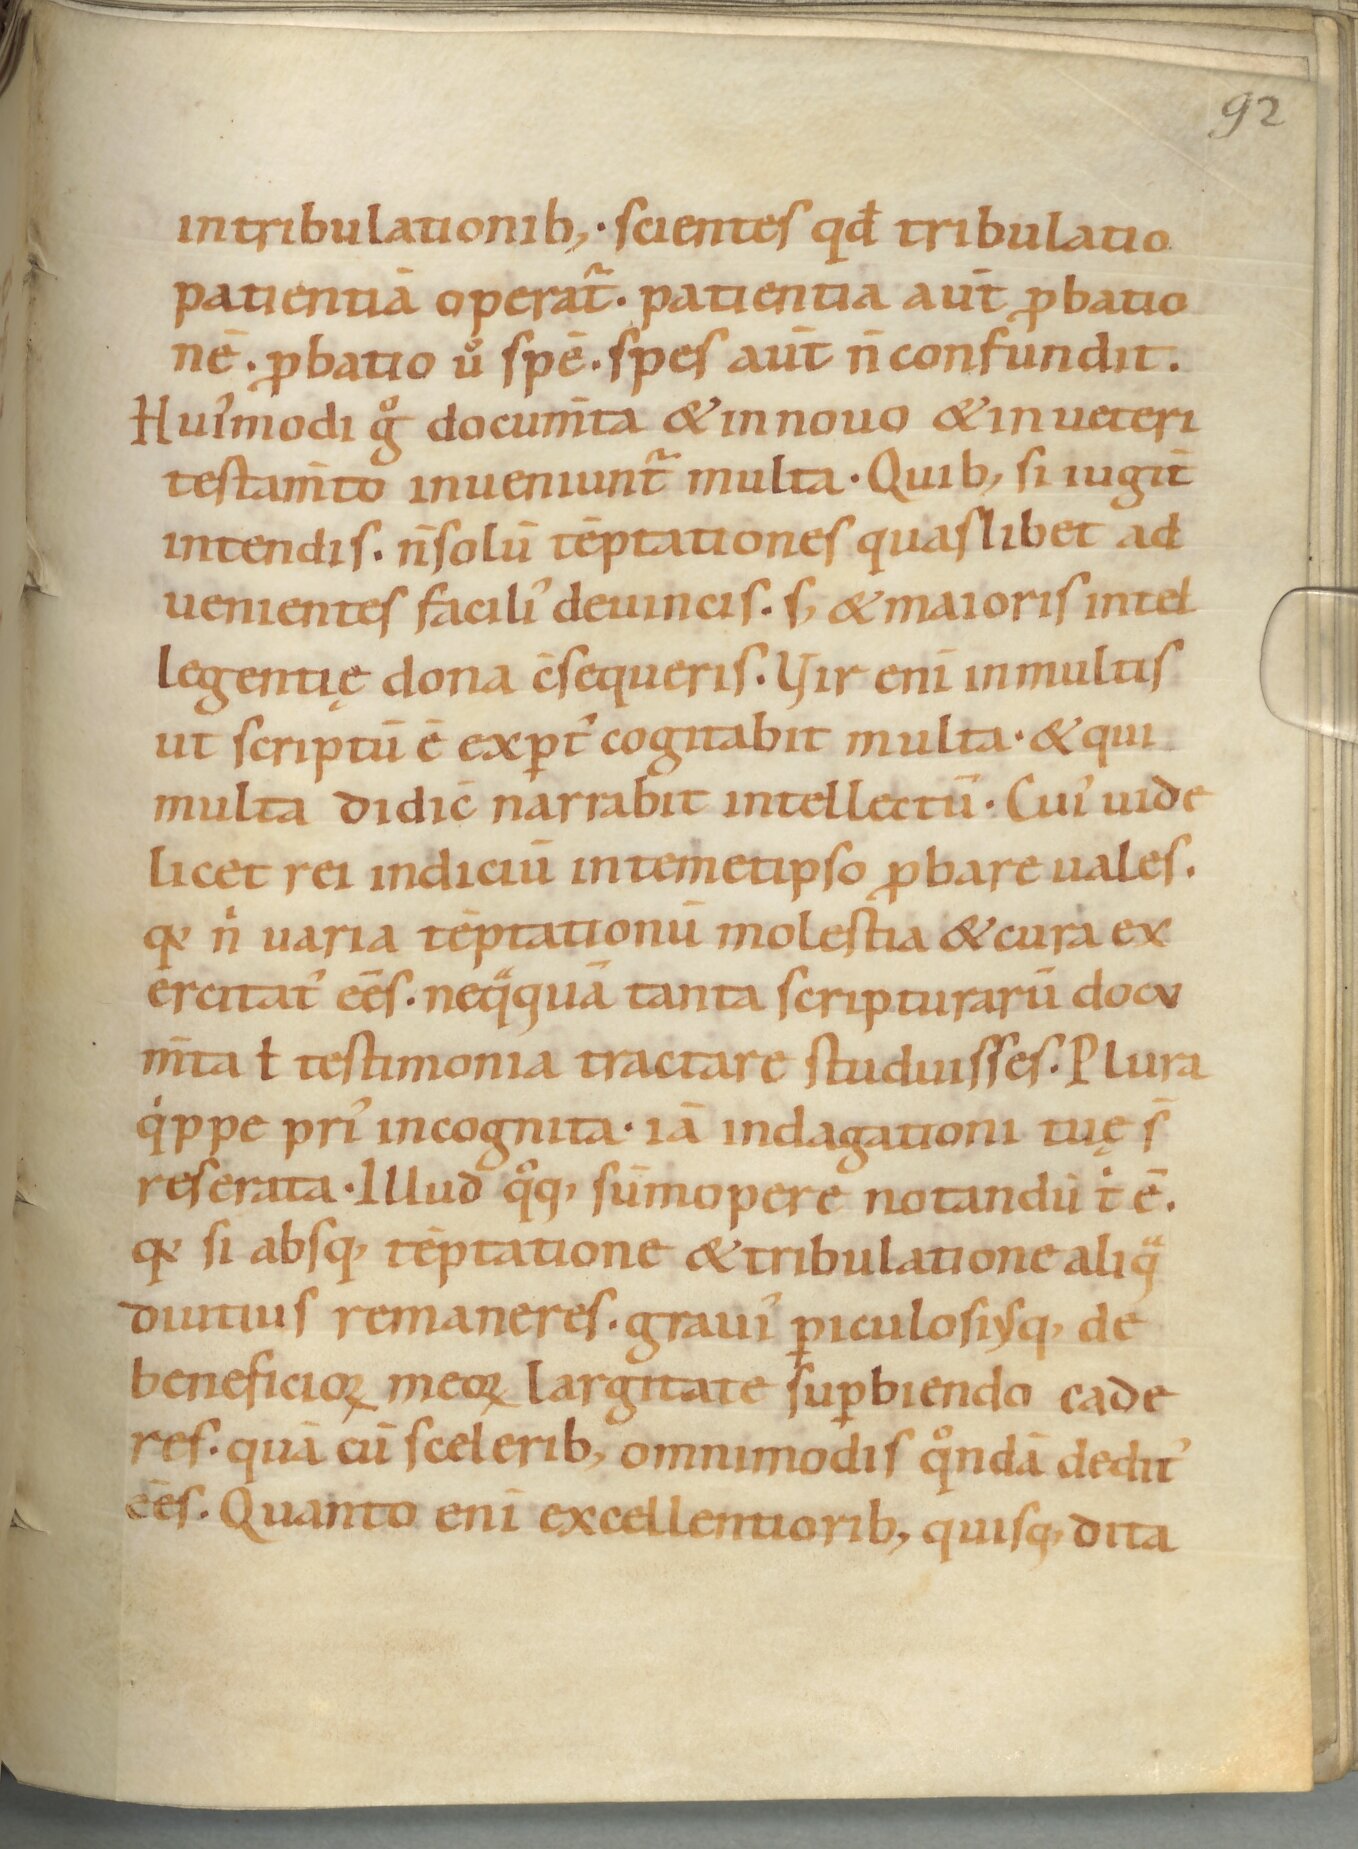 92
intribulationib,· scientes qđ tribulatio
patientiā operat̄᷑. patientia aut̄ ꝓbatio
nē. ꝓbatio ůo spē. spes aut̄ n̄ confundit.
Hui᾽modi gͦ docum̄ta & innouo & inueteri
testam̄to inueniunt̄᷑ multa. Quib, si iugit̄
intendis. n̄solū tēptationes quaslibet ad
uenientes facili᾽ deuincis. s, & maioris intel
legentię dona c̄sequeris. Vir enī inmultis
ut scriptū ē exꝑt᾽ cogitabit multa. & qui
multa didic̄ narrabit intellectū. Cui᾽ uide
licet rei indiciū intemetipso ꝓbare uales.
qꝛ nͥ uaria tēptationū molestia & cura ex
ercitat᾽ eēs. neqͣquā tanta scripturarū docu
m̄ta ł testimonia tractare studuisses. Plura
qͥppe pri᾽ incognita. iā indagationi tuę s̄
reserata. Illud qͦq, sūmopere notandū tͥ ē.
qꝛ si absq, tēptatione & tribulatione aliqͣ
diutius remaneres. graui᾽ ꝑiculosiusq, de
beneficioꝝ meoꝝ largitate suꝑbiendo cade
res. quā cū scelerib, omnimodis qͦndā dedit᾽
eēs. Quanto enī excellentiorib, quisq, dita